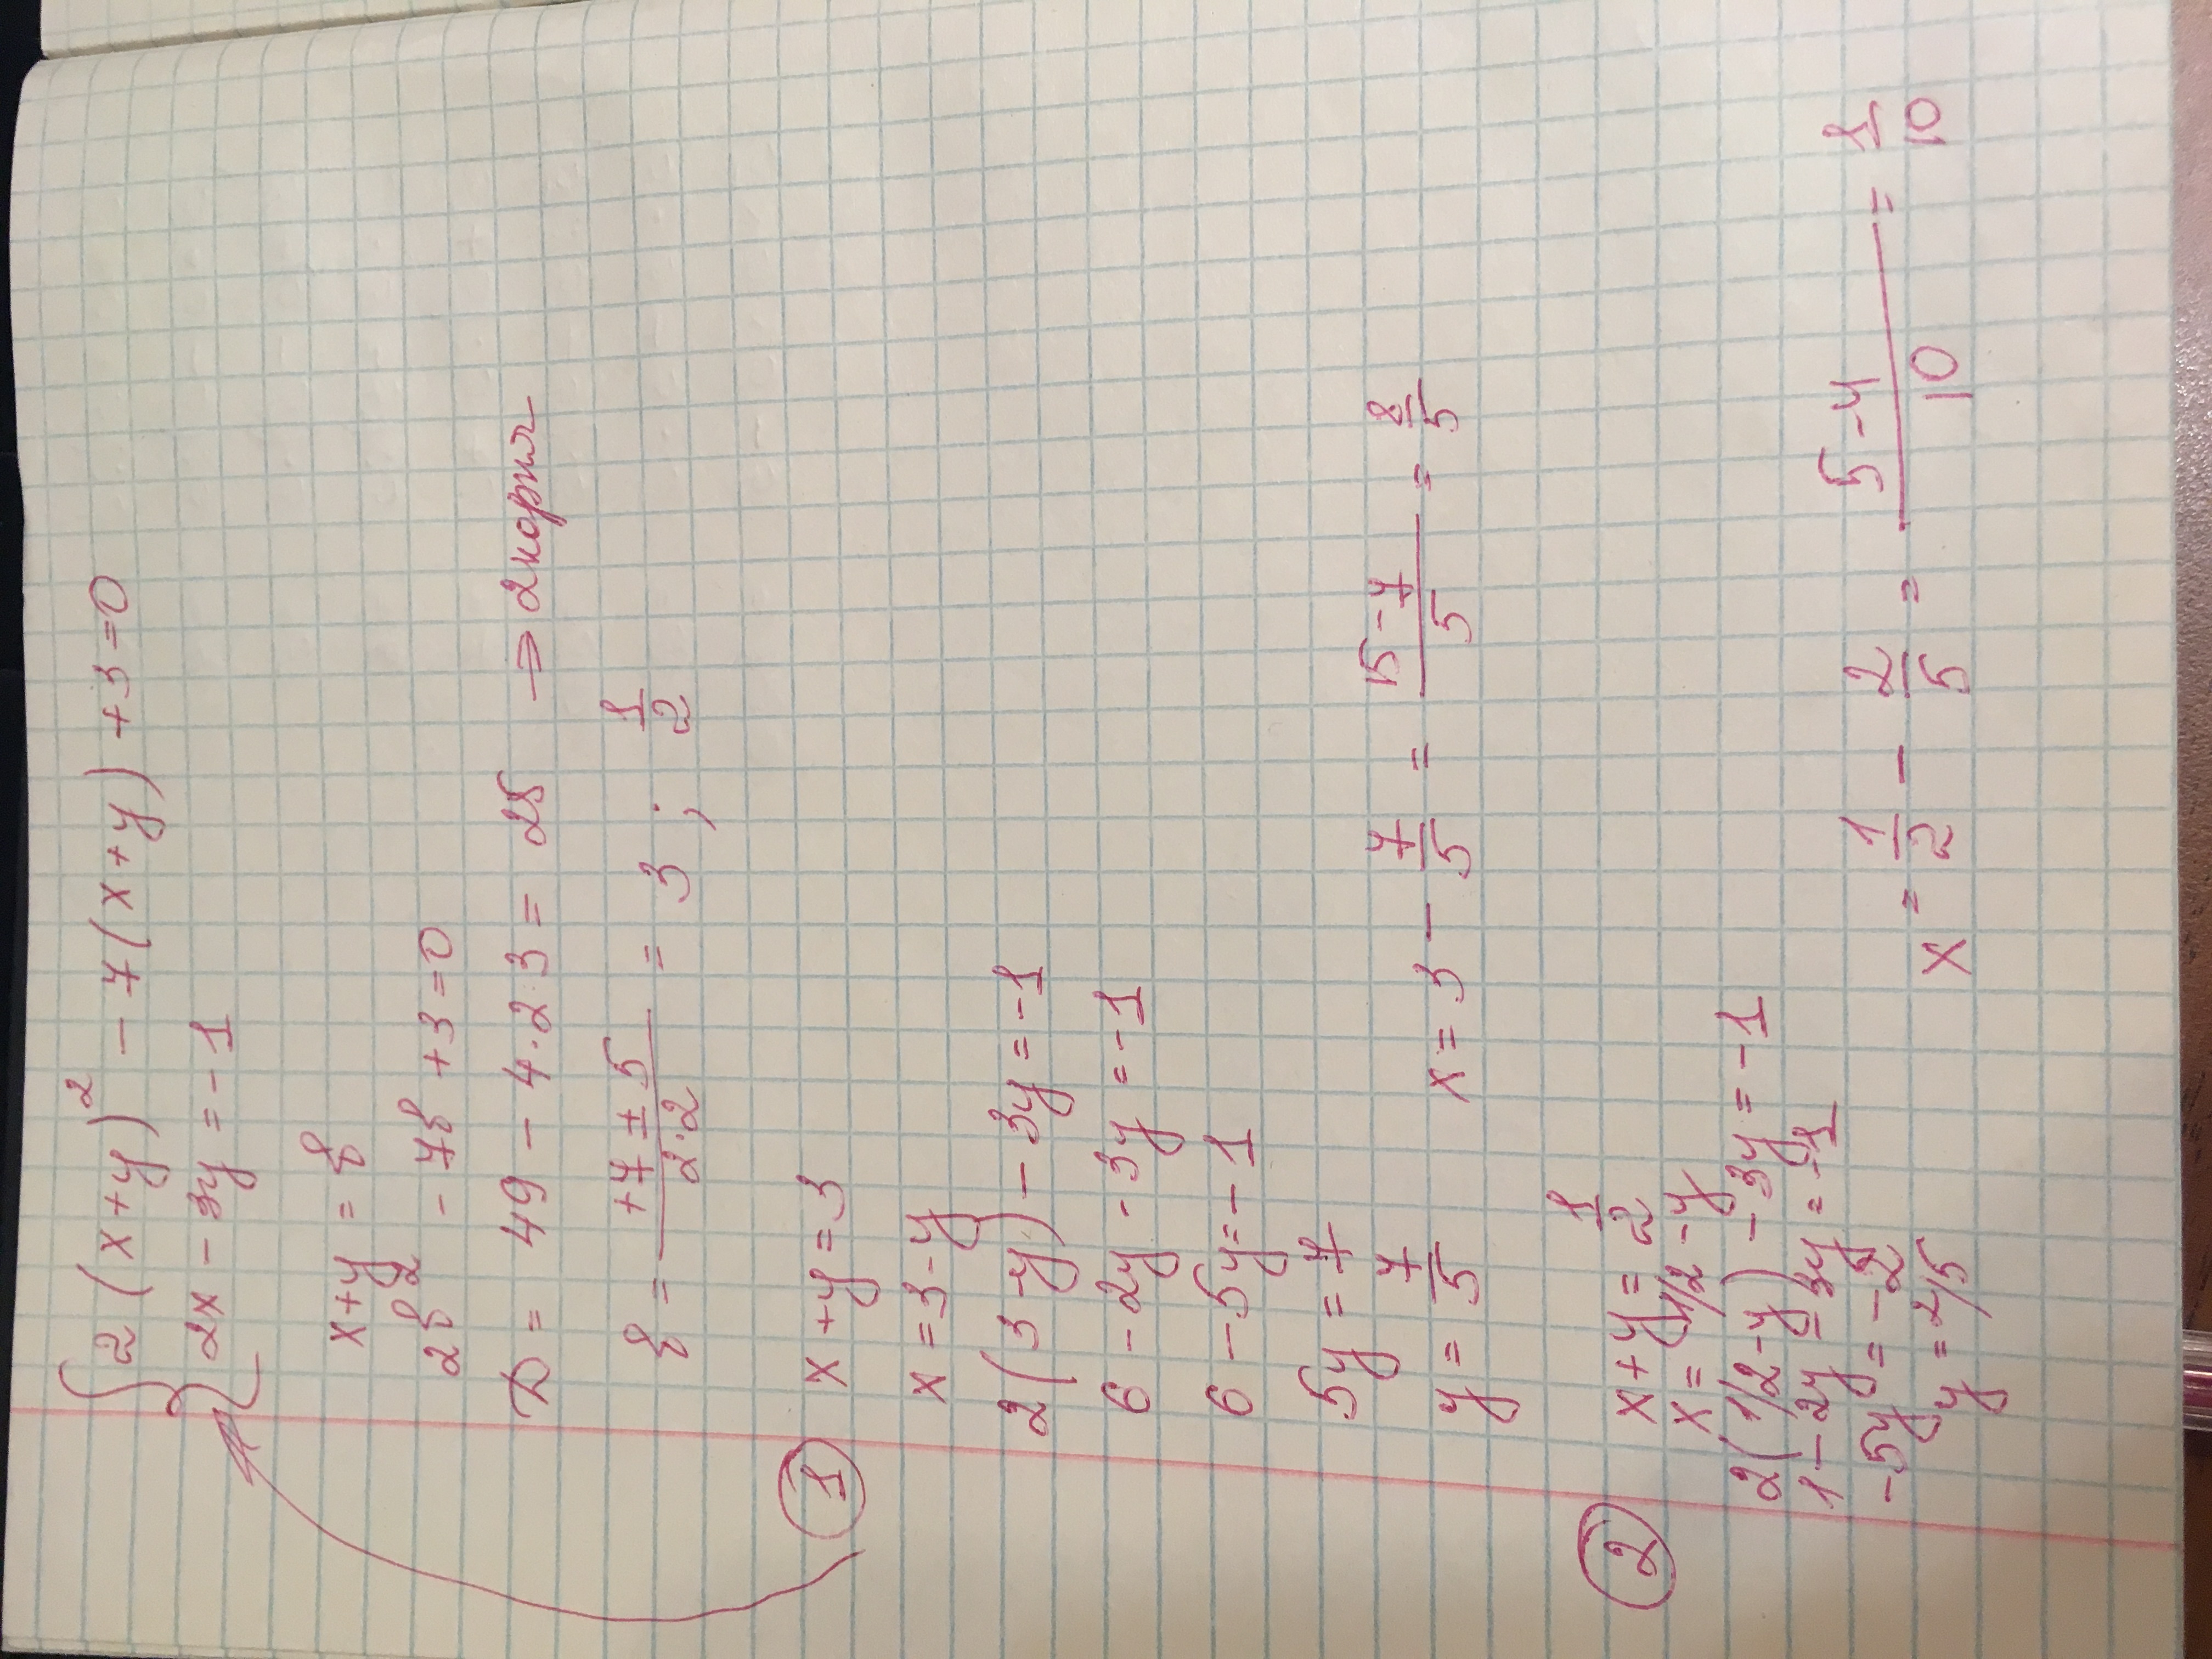 2(x+y)² - 7(x+y) + 3 = 0
2x - 3y = -1
x+y = b
2b² - 7b + 3 = 0
D = 49 - 4·2·3 = 25 ⇒ 2 корня
b = (+7 ± 5)/(2·2) = 3 ; 1/2
① x + y = 3
x = 3 - y
2(3-y) - 3y = -1
6 - 2y - 3y = -1
6 - 5y = -1
5y = 7
y = 7/5 x = 3 - 7/5 = (15-7)/5 = 8/5
② x + y = 1/2
x = 1/2 - y
2(1/2 - y) - 3y = -1
1 - 2y - 3y = -1
-5y = -2
y = 2/5 x = 1/2 - 2/5 = (5-4)/10 = 1/10